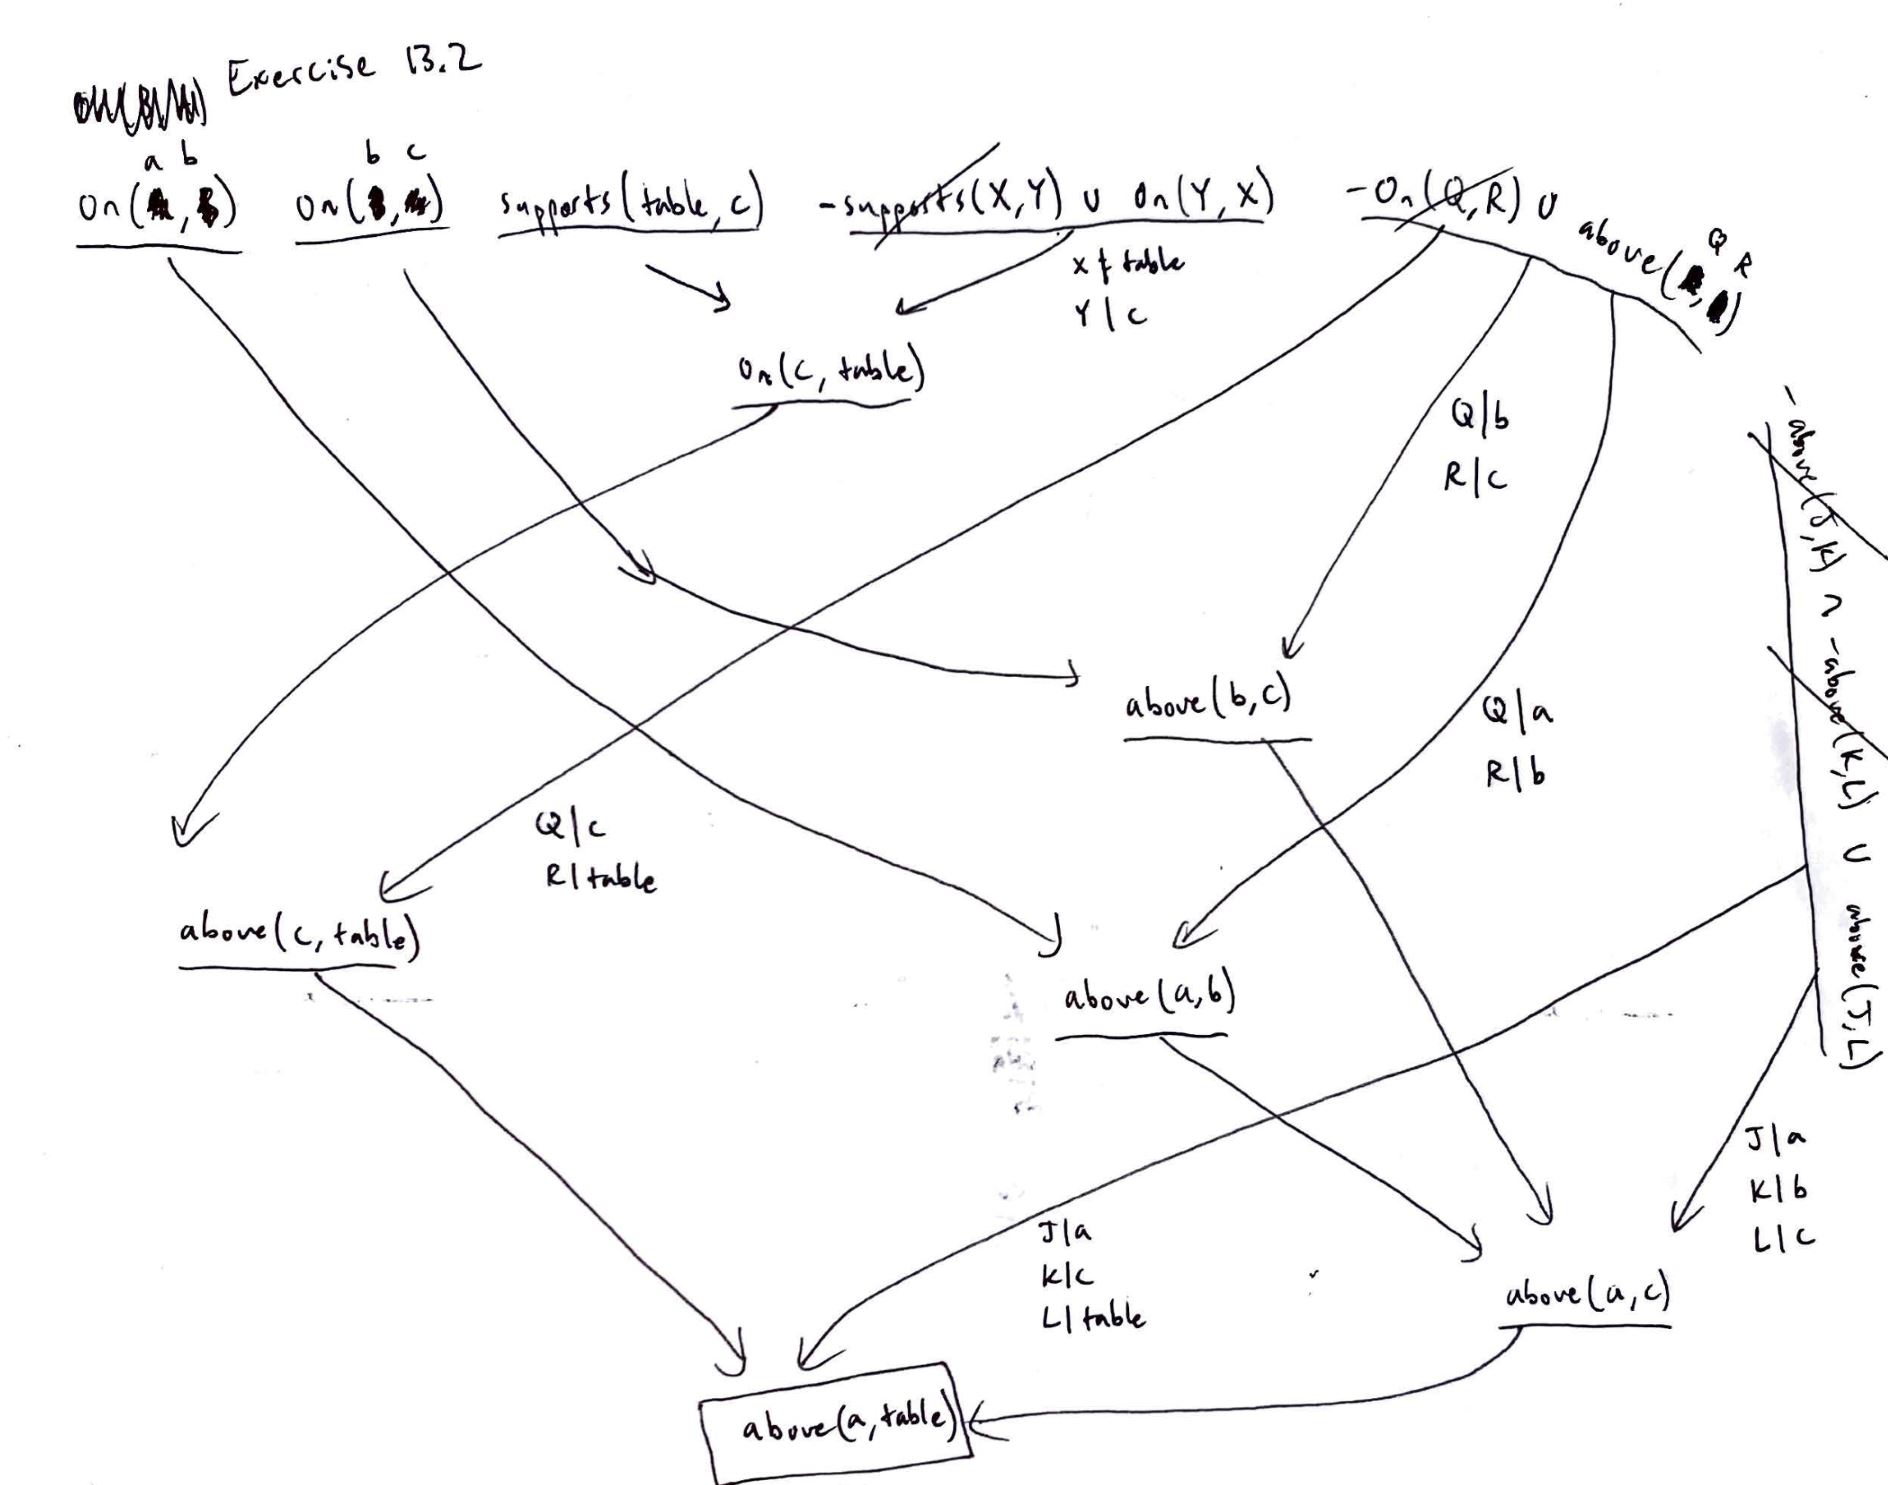 Exercise 13.2
a b
on( , )
b c
on( , )
supports(table, c)
-supports(X,Y) ∪ on(Y, X)
-on(Q,R) ∪
above( , )
Q R
X | table
Y | c
on(c, table)
Q | b
R | c
-above(J,K) ∩ -above(K,L) ∪ above(J,L)
above(b,c)
Q | a
R | b
Q | c
R | table
above(c, table)
above(a,b)
J | a
K | b
L | c
J | a
K | c
L | table
above(a,c)
above(a,table)